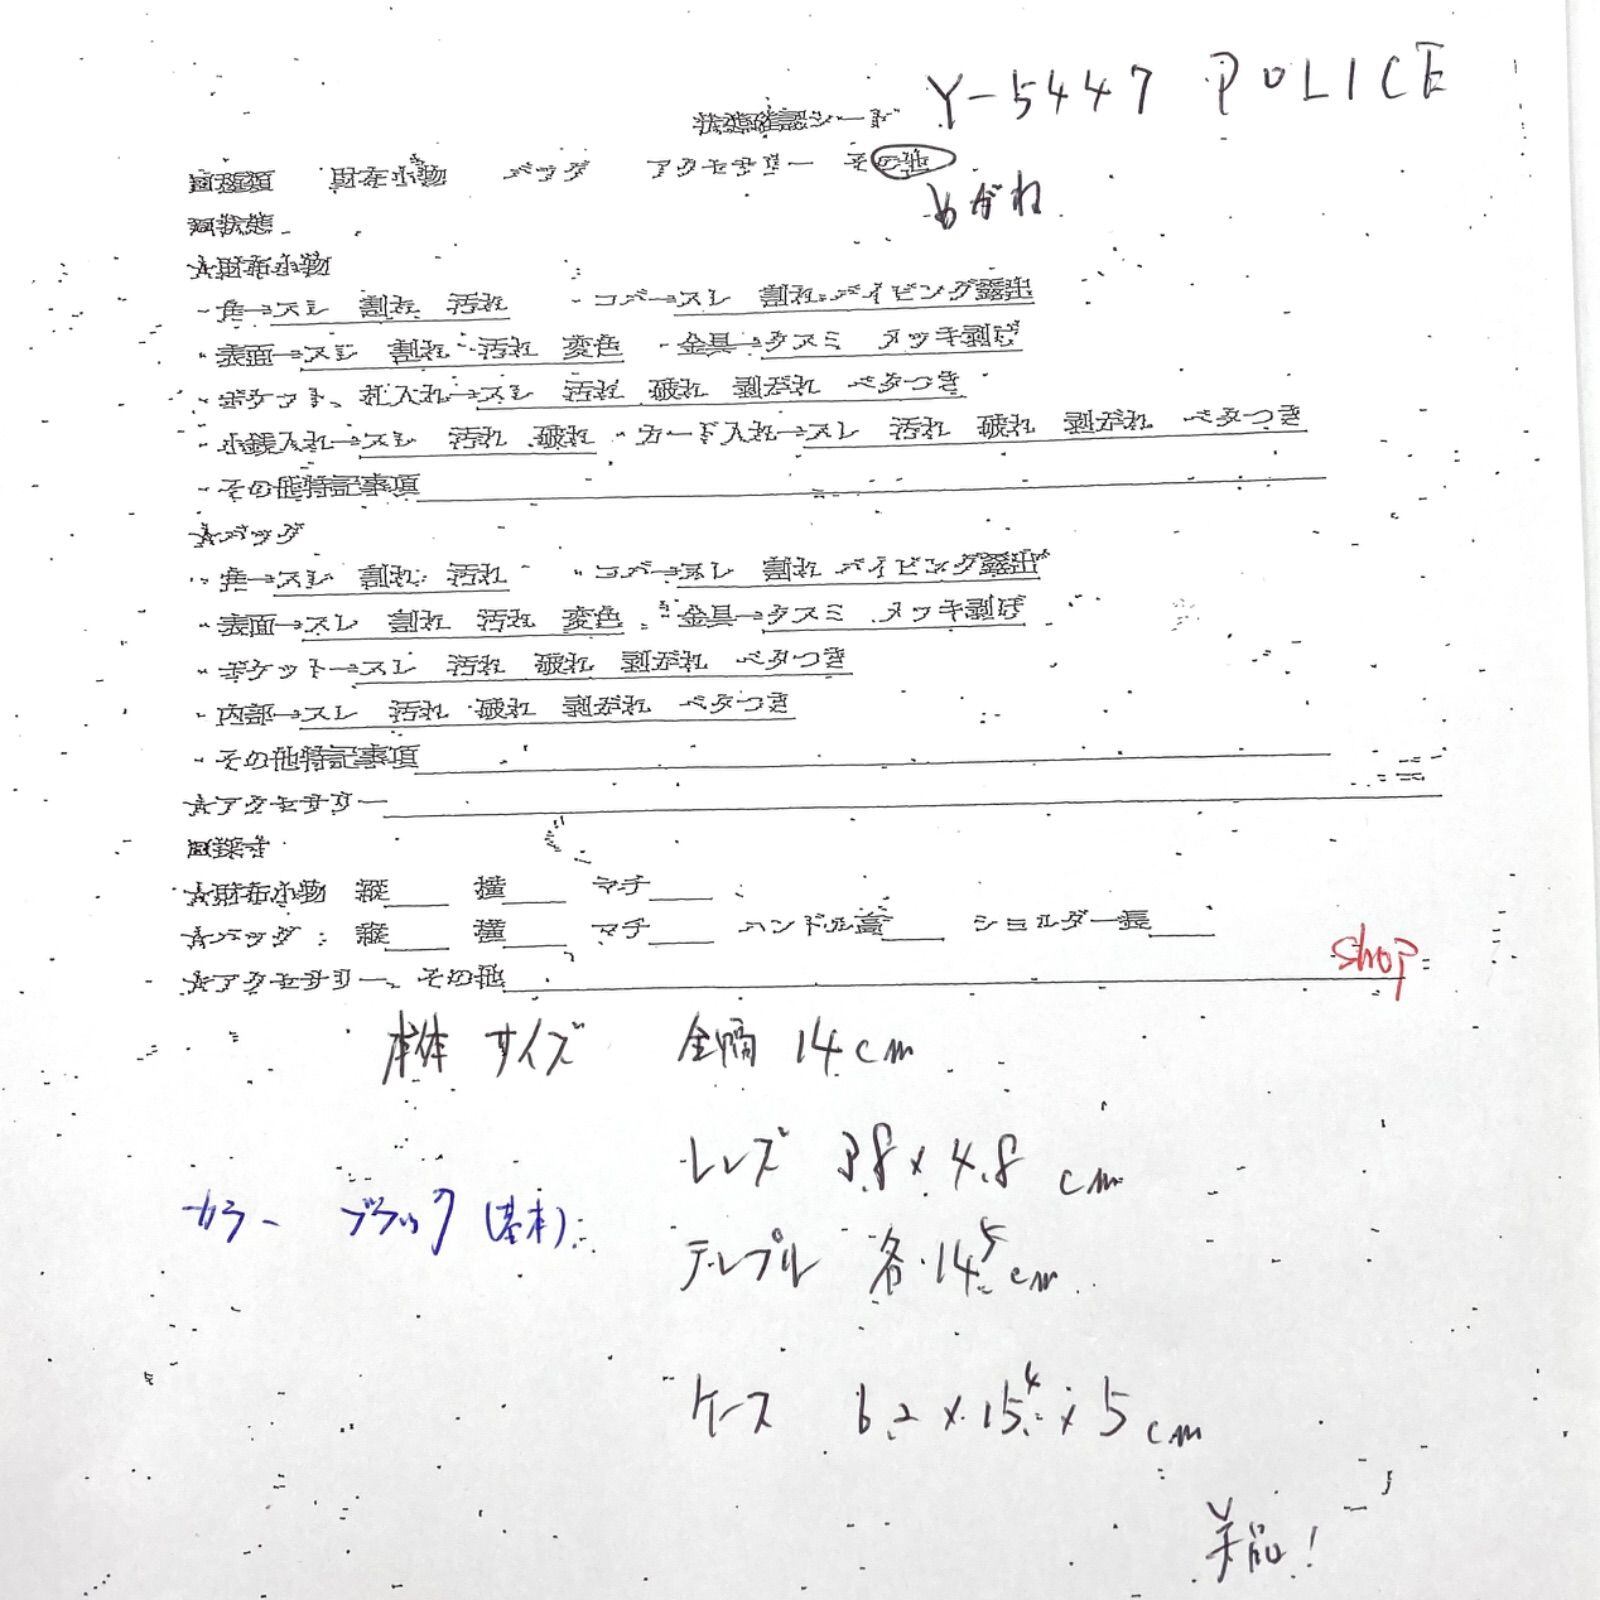 状態確認シート Y-5447 POLICE
□種類 財布小物 バッグ アクセサリー その他
めがね
□状態
★財布小物
・角→スレ 割れ 汚れ ・コバ→スレ 割れ パイピング露出
・表面→スレ 割れ 汚れ 変色 ・金具→クスミ メッキ剥げ
・ポケット、札入れ→スレ 汚れ 破れ 剥がれ ベタつき
・小銭入れ→スレ 汚れ 破れ ・カード入れ→スレ 汚れ 破れ 剥がれ ベタつき
・その他特記事項
★バッグ
・角→スレ 割れ 汚れ ・コバ→スレ 割れ パイピング露出
・表面→スレ 割れ 汚れ 変色 ・金具→クスミ メッキ剥げ
・ポケット→スレ 汚れ 破れ 剥がれ ベタつき
・内部→スレ 汚れ 破れ 剥がれ ベタつき
・その他特記事項
★アクセサリー
□採寸
★財布小物 縦 横 マチ
★バッグ：縦 横 マチ ハンドル高 ショルダー長
★アクセサリー、その他 shop
本体 サイズ 全幅 14cm
レンズ 3.8×4.8 cm
カラー ブラック(基本)
テンプル 各 14.5cm
ケース 6.2×15.4×5cm
美品!